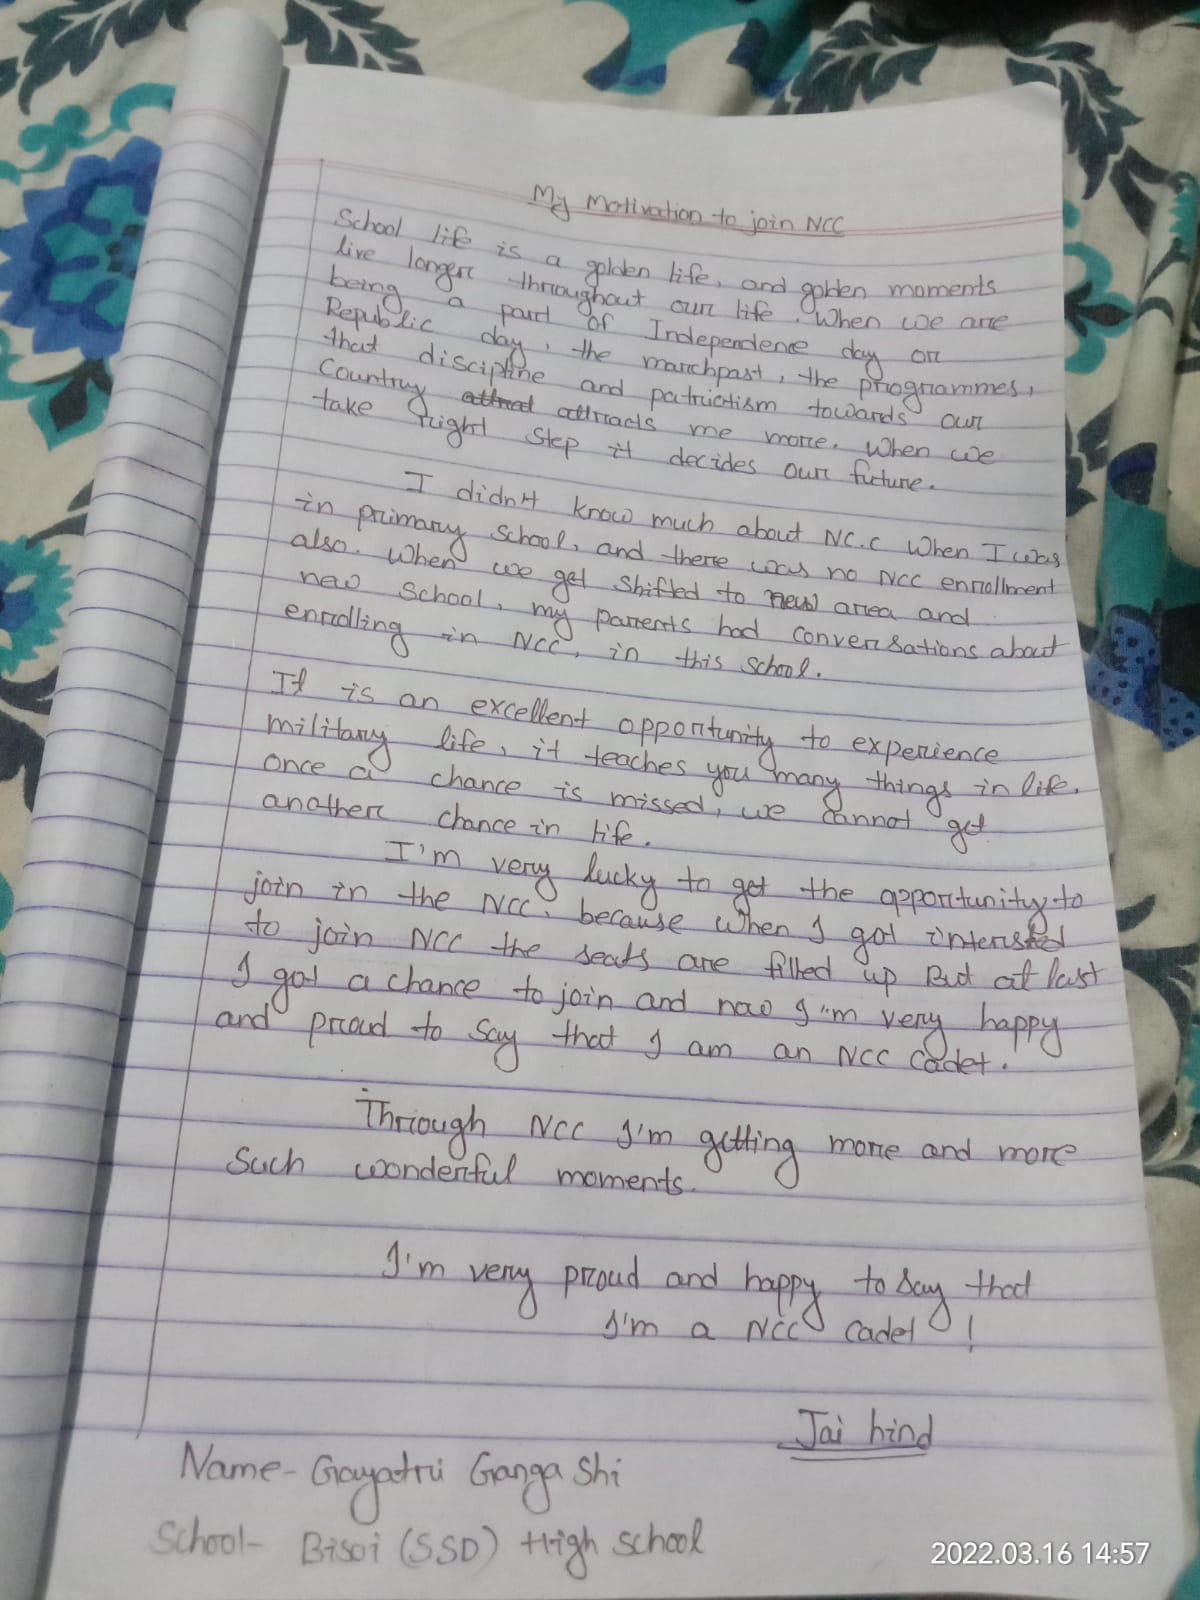 My Motivation to join NCC
School life is a golden life, and golden moments
live longer throughout our life. When we are
being a part of Independence day or
Republic day, the marchpast, the programmes,
that discipline and patriotism towards our
Country attracts me more. When we
take right step it decides our future.
I didn't know much about NC.C when I was
in primary school, and there was no NCC enrollment
also. When we get shifted to new area and
new School, my parents had conversations about
enrolling in NCC, in this school.
It is an excellent opportunity to experience
military life, it teaches you many things in life.
once a chance is missed, we cannot get
another chance in life.
I'm very lucky to get the opportunity to
join in the NCC, because when I got intersted
to join NCC the seats are filled up But at last
I got a chance to join and now I'm very happy
and proud to say that I am an NCC cadet.
Through NCC I'm getting more and more
Such wonderful moments.
I'm very proud and happy to say that
I'm a NCC cadet !
Jai hind
Name- Gayatri Ganga Shi
School- Bisoi (SSD) High school
2022.03.16 14:57